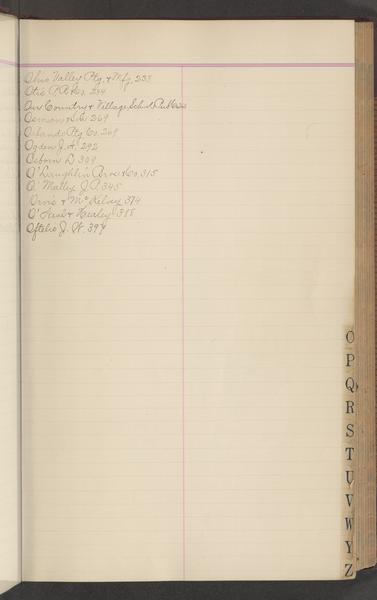 Ohio Valley Ptg. & Mfg. 233
Otis P. R. Co. 244
Our Country & Village School Pub Co
Osmon & Co 269
Orlando Ptg Co. 269
Ogden J. H. 292
Osborn D 309
O'Laughlin Bros & Co. 315
O'Malley J. P. 345
Orvis & McKelvey 374
O'Neal & Healey 388
Oftelie J. W. 394
O
P
Q
R
S
T
U
V
W
Y
Z